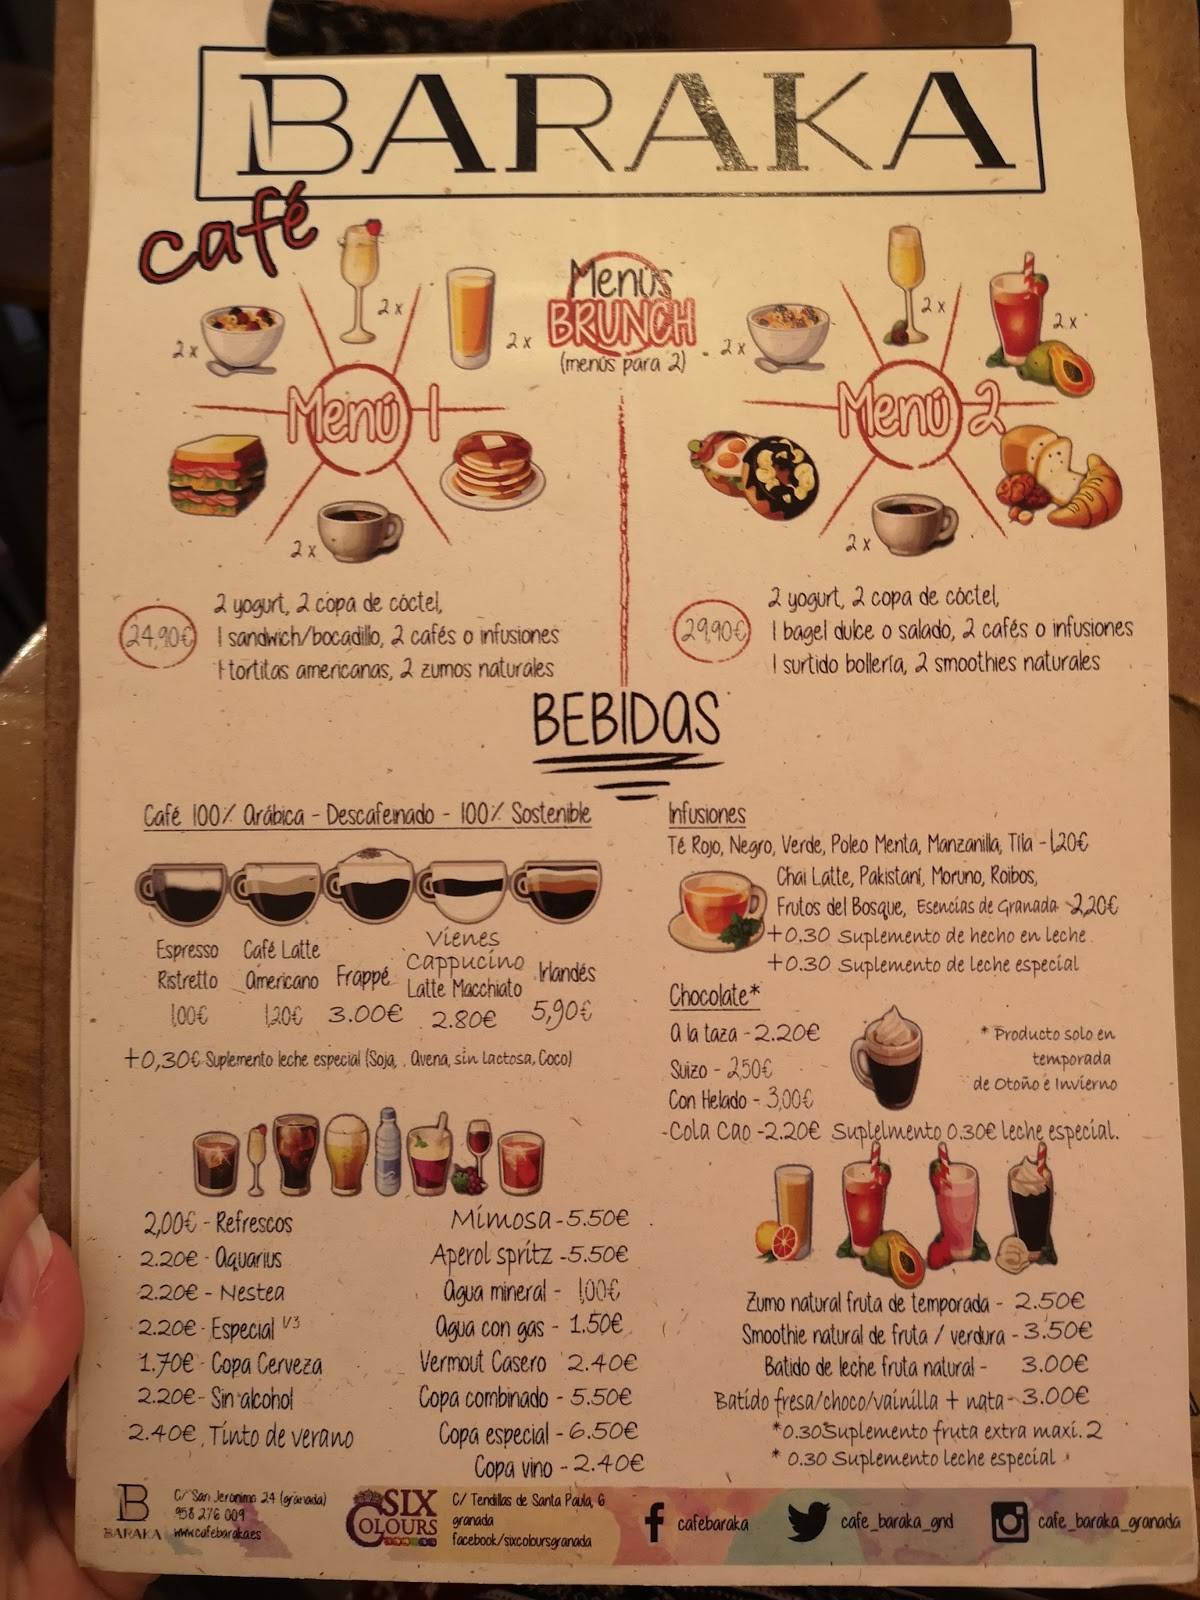 BARAKA
café
Menús
BRUNCH
(menús para 2)
2 x
2 x
2 x
2 x
Menú 1
2 x
2 x
2 x
Menú 2
2 x
24,90€
2 yogurt, 2 copa de cóctel,
1 sandwich/bocadillo, 2 cafés o infusiones
1 tortitas americanas, 2 zumos naturales
29,90€
2 yogurt, 2 copa de cóctel,
1 bagel dulce o salado, 2 cafés o infusiones
1 surtido bollería, 2 smoothies naturales
BEBIDAS
Café 100% Arábica - Descafeinado - 100% Sostenible
Espresso
Ristretto
1,00€
Café Latte
Americano
1,20€
Frappé
3.00€
Vienes
Cappucino
Latte Macchiato
2.80€
Irlandés
5,90€
+0,30€ Suplemento leche especial (Soja, . Avena, sin lactosa, Coco)
2,00€ - Refrescos
2.20€ - Aquarius
2.20€ - Nestea
2.20€ - Especial 1/3
1.70€ - Copa Cerveza
2.20€ - Sin alcohol
2.40€ . Tinto de verano
Mimosa - 5.50€
Aperol spritz - 5.50€
Agua mineral - 1,00€
Agua con gas - 1.50€
Vermout Casero 2.40€
Copa combinado - 5.50€
Copa especial - 6.50€
Copa vino - 2.40€
Infusiones
Té Rojo, Negro, Verde, Poleo Menta, Manzanilla, Tila - 1,20€
Chai Latte, Pakistaní, Moruno, Roibos,
Frutos del Bosque, Esencias de Granada 2,20€
+0.30 Suplemento de hecho en leche
+0.30 Suplemento de leche especial
Chocolate*
A la taza - 2.20€
Suizo - 2,50€
Con Helado - 3,00€
-Cola Cao - 2.20€ Suplelmento 0.30€ leche especial.
* Producto solo en
temporada
de Otoño e Invierno
Zumo natural fruta de temporada - 2.50€
Smoothie natural de fruta / verdura - 3.50€
Batido de leche fruta natural - 3.00€
Batido fresa/choco/vainilla + nata - 3.00€
*0.30 Suplemento fruta extra maxi. 2
* 0.30 Suplemento leche especial
BARAKA
C/ San Jeronimo 24 (granada)
958 276 009
www.cafebaraka.es
SIX
COLOURS
C/ Tendillas de Santa Paula, 6
granada
facebook/sixcoloursgranada
cafebaraka
cafe_baraka_gnd
cafe_baraka_granada